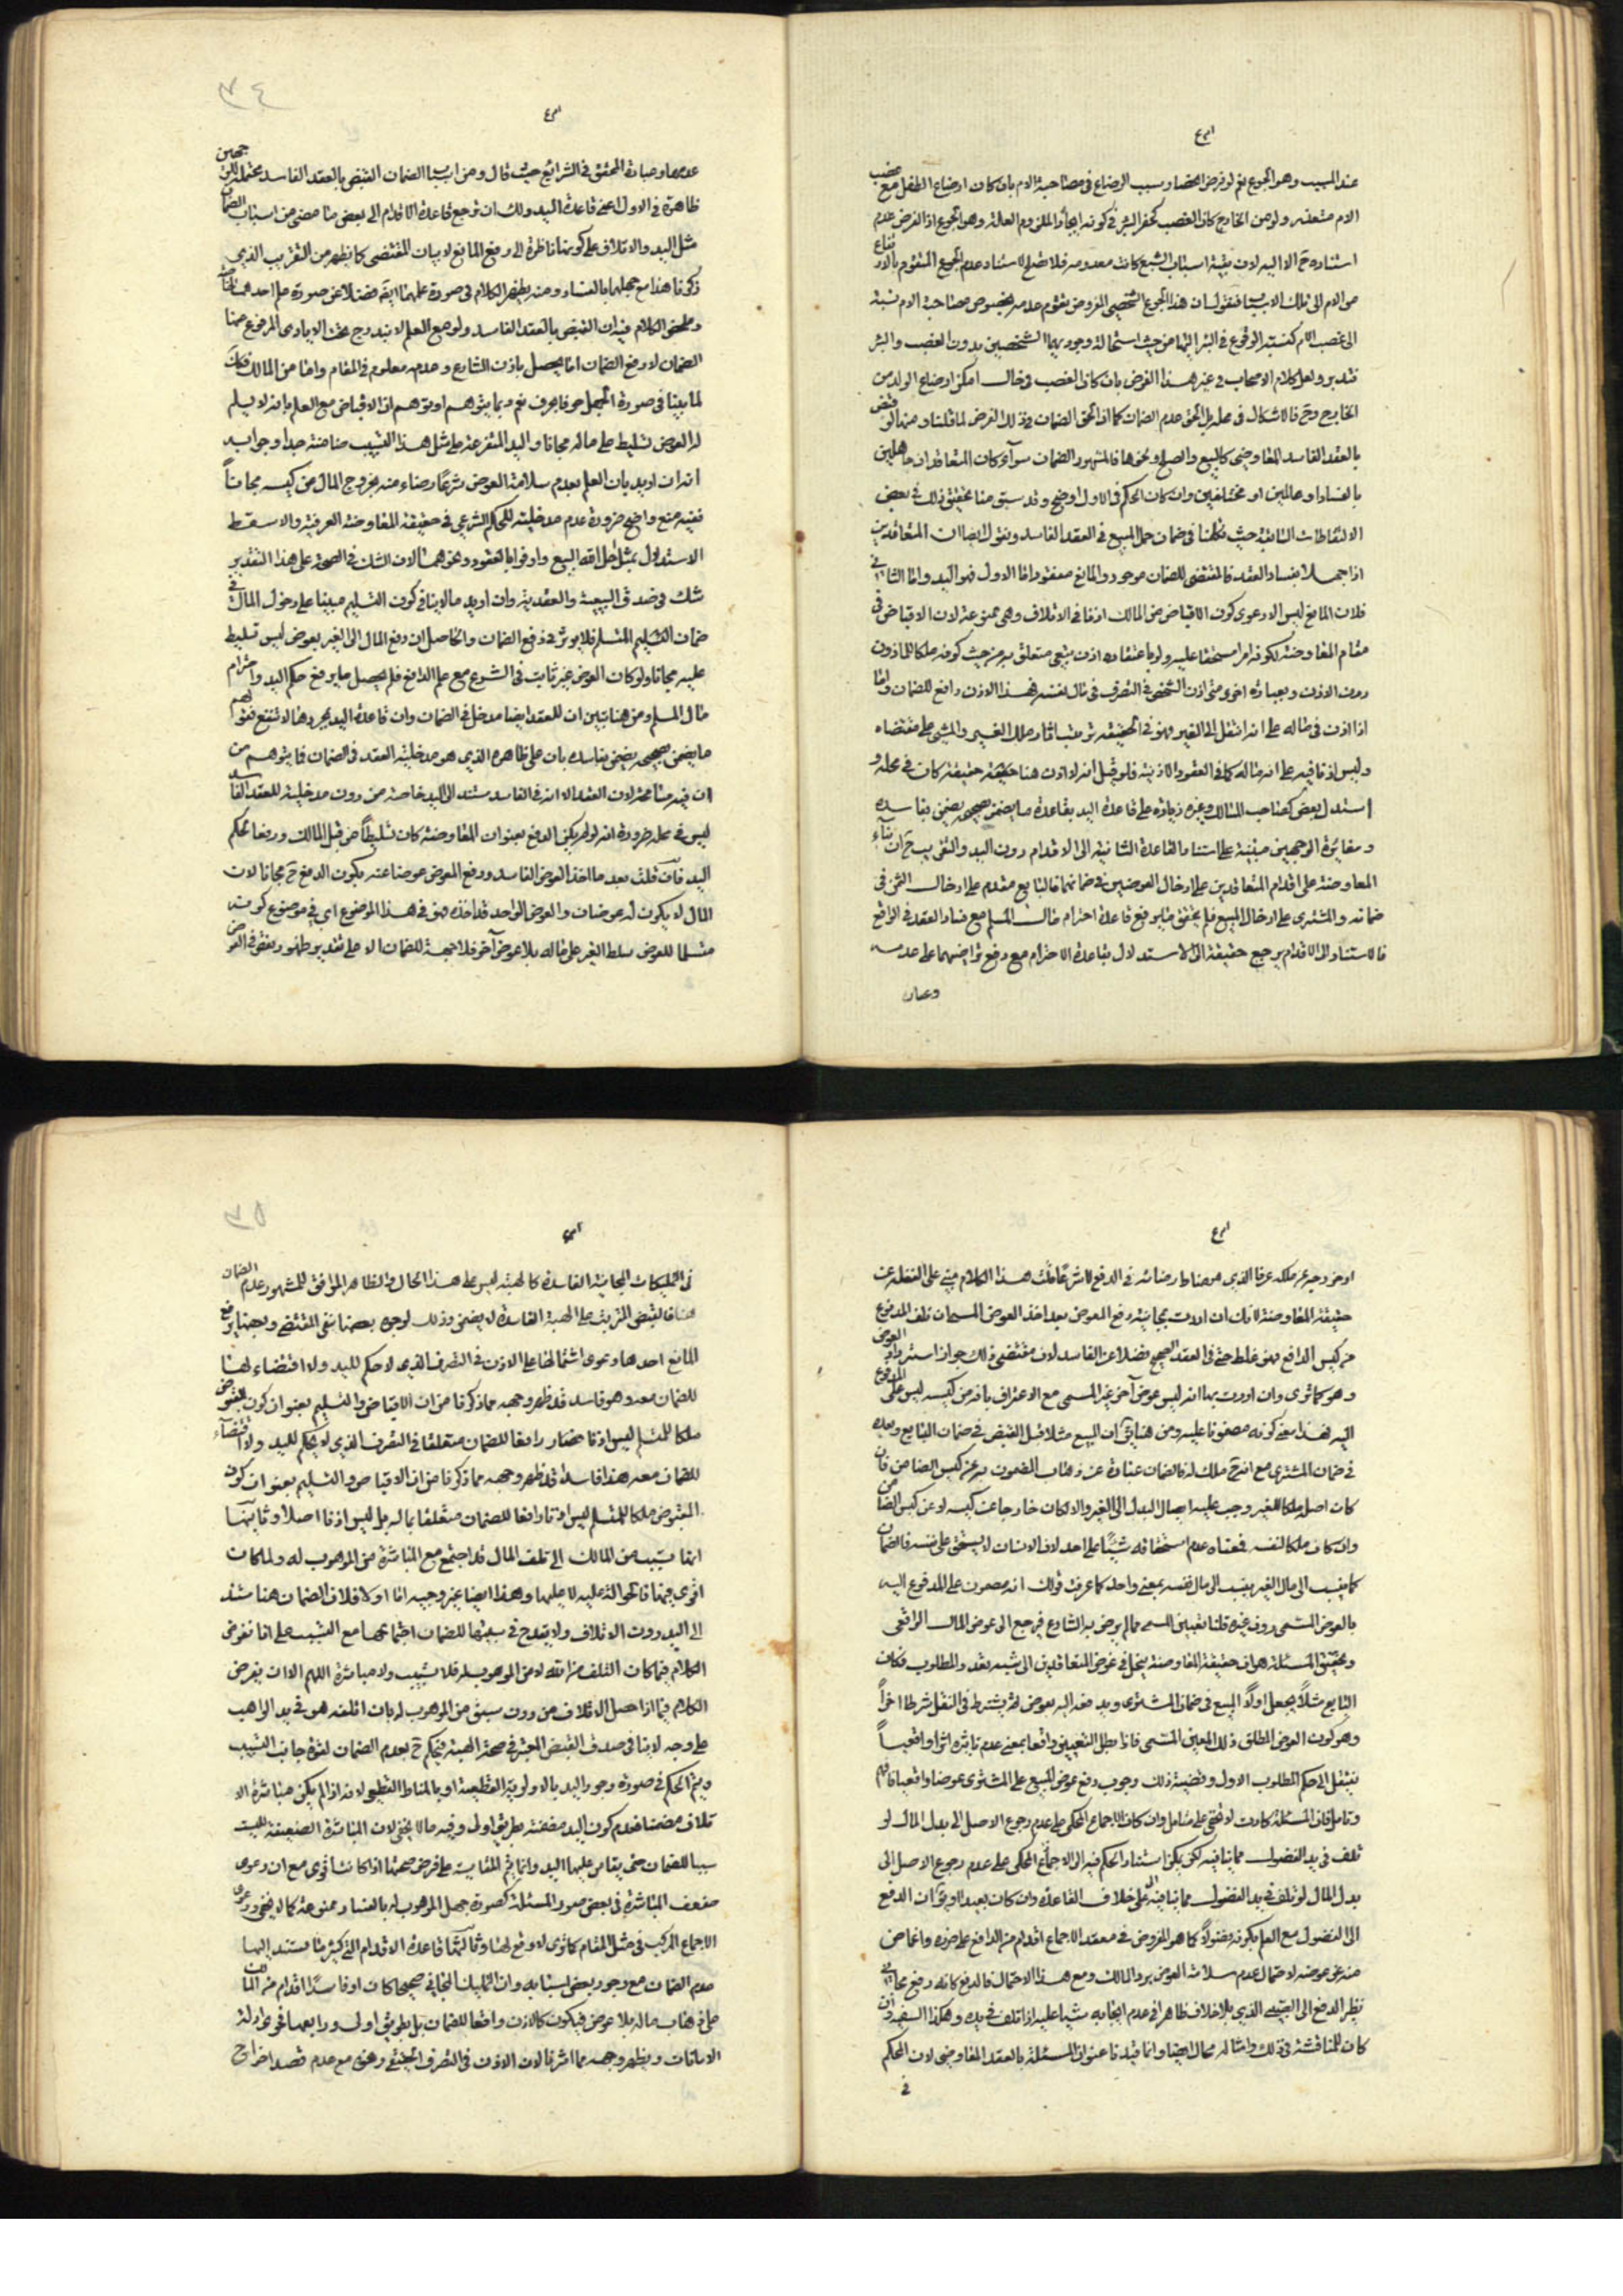 عند السبب وهو الجوع نعم لو فرض انحصار سبب الرضاع في مصاحبة الام بان كان ارضاع الطفل مع غصب
الام متعذر ولو من الخارج كان الغصب كحفر البئر في كونه ايجادا لملزوم العلة وهو الجوع اذ الفرض عدم
استناده ح الا اليه لان بقية اسباب الشبع كانت معدومة فلا تصلح لاستناد عدم الجوع المتقوم بالارتضاع
من الام الى تلك الاسباب فنقول ان هذا الجوع الشخصي المفروض تقوم عدمه بخصوص مصاحبة الام نسبته
الى غصب الام كنسبة الوقوع في البئر اليها من حيث استحالة وجود هما الشخصين بدون الغصب والبئر
فتدبر ولعل كلام الاصحاب في غير هذا الفرض بان كان الغصب في حال امكن ارضاع الولد من
الخارج وح فلا اشكال في عدم الضمان كما ان الحق الضمان في ذلك الفرض لما قلنا ومنها القبض
بالعقد الفاسد المعاوضي كالبيع والصلح ونحوها فالمشهور الضمان سواء كان المتعاقدان جاهلين
بالفساد او عالمين او مختلفين وان كان الحكم في الاول اوضح وقد سبق منا تحقيق ذلك في بعض
الالتقاطات السابقة حيث تكلمنا في ضمان حمل المبيع في العقد الفاسد ونقول ايضا ان المتعاقدين
اذا جهلا بفساد العقد فالمقتضى للضمان موجود والمانع مفقود اما الاول فهو اليد واما الثاني
فلان المانع ليس الا دعوى كون الاقباض من المالك اذنا في الاتلاف وهي ممنوعة لان الاقباض في
مقام المعاوضة لكونه امرا مستحقا عليه ولو باعتقاده اذن تبعي متعلق به من حيث كونه ملكا للماذون
دون الاذن وبعبارة اخرى متى اذن الشخص في التصرف في مال نفسه فهذا الاذن رافع للضمان واما
اذا اذن في ماله على انه انتقل الى الغير فهو في الحقيقة ترتيب اثار ملك الغير والمشي على مقتضاه
وليس اذنا فيه على انه ماله كما في العقود الاذنية فلو قيل انه لا اذن هنا حقيقة كان في محله و
استدل بعض كصاحب المسالك وغيره زيادة على قاعدة اليد بقاعدة ما يضمن بصحيحه يضمن بفاسده
ومغايرة الوجهين مبنية على استناد القاعدة الثانية الى الاقدام دون اليد والتقريب ح ان بناء
المعاوضة على اقدام المتعاقدين على ادخال العوضين في ضمانهما فالبايع مقدم على ادخال الثمن في
ضمانه والمشتري على ادخال المبيع فلم يتحقق ما يرفع قاعدة احترام مال المسلم مع فساد العقد في الواقع
فالاستناد الى الاقدام يرجع حقيقة الى الاستدلال بقاعدة الاحترام مع رفع تراضيهما على عدمه
وعبارة
عدمها وعبارة المحقق في الشرايع حيث قال ومن اسباب الضمان القبض بالعقد الفاسد محتملة للوجهين
ظاهرة في الاول اعني قاعدة اليد ولك ان ترجع قاعدة الاقدام الى بعض ما مضى من اسباب الضمان
مثل اليد والاتلاف على كونها ناظرة الى رفع المانع لا بيان المقتضى كما يظهر من التقريب الذي
ذكرنا هذا مع جهلهما بالفساد ومنه يظهر الكلام في صورة علمهما ايضا فضلا عن صورة علم احدهما
وملخص الكلام فيه ان القبض بالعقد الفاسد ولو مع العلم لا يندرج تحت الايادي المرفوع عنها
الضمان لان رفع الضمان اما يحصل باذن الشارع وعدمه معلوم في المقام واما من المالك فكذلك
لما بينا في صورة الجهل حرفا بحرف نعم ربما يتوهم او توهم ان الاقباض مع العلم بانه لا يسلم
له العوض تسليط على ماله مجانا واليد المتفرعة على مثل هذا التسبيب ضامنة جدا وجوابه
انه ان اريد بان العلم بعدم سلامة العوض شرعا رضاء منه بخروج المال من كيسه مجانا
ففيه منع واضح ضرورة عدم مدخلية الحكم الشرعي في حقيقة المعاوضة العرفية والا سقط
الاستدلال بمثل احل الله البيع واوفوا بالعقود ونحوهما لان الشك في الصحة على هذا التقدير
شك في صدق البيعية والعقدية وان اريد ما لا ينافي كون التسليم مبنيا على دخول المال في
ضمان المتسلم فلا يؤثر في رفع الضمان والحاصل ان دفع المال الى الغير بعوض ليس تسليط
عليه مجانا ولو كان العوض غير ثابت في الشرع مع علم الدافع فلم يحصل ما يرفع حكم اليد واحترام
مال المسلم ومن هنا تبين ان للعقد ايضا مدخل في الضمان وان قاعدة اليد بمجردها لا تنفع فقولهم
ما يضمن بصحيحه يضمن بفاسده بان على ظاهره الذي هو مدخلية العقد في الضمان فما يتوهم من
ان فيه مسامحة لان العقد الا انه في الفاسد مستند الى اليد خاصة من دون مدخلية للعقد الفاسد
ليس في محله ضرورة انه لو لم يكن الدفع بعنوان المعاوضة كان تسليطا من قبل المالك ورفعا لحكم
اليد فان قلت بعد ما اخذ العوض الفاسد ودفع المعوض عوضا عنه يكون الدفع ح مجانا لان
المال لا يكون له عوضان والعوض الواحد قد اخذه فهو في هذا الموضوع اي في موضوع كونه
متسلما للعوض سلط الغير على ماله بلا عوض آخر فلا جهة للضمان الا على تقدير ظهور نقض في العوض
او خروجه عن ملكه عرفا الذي هو مناط رضائه في الدفع لا شرعا قلت هذا الكلام مبني على الغفلة عن
حقيقة المعاوضة لانك ان اردت مجانية دفع المعوض بعد اخذ العوض المسمى ان تلف المدفوع
من كيس الدافع فهو غلط حتى في العقد الصحيح فضلا عن الفاسد لان مقتضى ذلك جواز استرداد العوض
وهو كما ترى وان اردت بها انه ليس عوض آخر غير المسمى مع الاعتراف بانه من كيسه ليس على المدفوع
اليه فهذا معنى كونه مضمونا عليه ومن هنا يقال ان المبيع مثلا قبل القبض في ضمان البايع وبعده
في ضمان المشتري مع انه ح ملك له فالضمان عبارة عن ذهاب المضمون به عن كيس الضامن فان
كان اصله ملكا للغير وجب عليه ايصال البدل الى الغير والا لكان خارجا عن كيسه لا عن كيس الضامن
وان كان ملكا لنفسه فمعناه عدم استحقاقه شيئا على احد لان الانسان لا يستحق على نفسه فالضمان
كما ينسب الى مال الغير ينسب الى مال نفسه بمعنى واحد كما عرفت قولك انه مضمون على المدفوع اليه
بالعوض المسمى دون غيره قلنا تعيين المسمى مما لم يرض به الشارع فيرجع الى عوض المال الواقعي
وتحقيق المسئلة هو ان حقيقة المعاوضة ينحل في غرض المتعاقدين الى شبه تعدد المطلوب فكان
البايع مثلا يجعل اولا المبيع في ضمان المشتري ويدفعه اليه بعوض ثم يشترط في النقل شرطا اخرا
وهو كون العوض المطلق ذلك المعين المسمى فاذا بطل التعيين واقعا بمعنى عدم تاثيره اثرا واقعيا
ينتقل الى حكم المطلوب الاول وقضيته ذلك وجوب دفع عوض المبيع على المشتري عوضا واقعيا فافهم
وتامل فان المسئلة كادت لا تخفى على متامل وان كان الاجماع المحكي على عدم رجوع الاصل الى بدل المال لو
تلف في يد الفضولي مما ينافيه لكن يمكن استناد الحكم فيه الى الاجماع المحكي على عدم رجوع الاصل الى
بدل المال لو تلف في يد الفضولي مما ينافيه الى على خلاف القاعدة وان كان بعيدا او يقال ان الدفع
الى الفضولي مع العلم بكونه فضولا كما هو المفروض في معقد الاجماع اقدام من الدافع على ضرره واغماض
منه عن عوضه لاحتمال عدم سلامة العوض برد المالك ومع هذا الاحتمال فالدفع كانه دفع مجاني
نظير الدفع الى الصبي الذي بلا خلاف ظاهر في عدم ايجابه شيئا عليه اذا تلف في يده وهكذا السفيه وان
كان للمناقشة في ذلك وامثاله مجال ايضا وانما قيدنا عنوان المسئلة بالعقد المعاوضي لان الحكم
في
في التمليكات المجانية الفاسدة كالهبة ليس على هذا الحال فالظاهر الموافق للمشهور عدم الضمان
هنا فالقبض المترتب على الهبة الفاسدة لا يضمن وذلك لوجوه بعضها ينفي المقتضى وبعضها يرفع
المانع احدها دعوى اشتمالها على الاذن في التصرف الذي لا حكم لليد ولا اقتضاء لها
للضمان معه وهو فاسد قد ظهر وجهه مما ذكرنا من ان الاقباض والتسليم بعنوان كون المقبوض
ملكا للمتسلم ليس اذنا فضلا رافعا للضمان متعلقا في التصرف الذي لا حكم لليد ولا اقتضاء
للضمان معه هذا فاسد قد ظهر وجهه مما ذكرنا من ان الاقباض والتسليم بعنوان كون
المقبوض ملكا للمتسلم ليس اذنا رافعا للضمان متعلقا بماله بل ليس اذنا اصلا وثانيها
انها تسبيب من المالك الى تلف المال قد اجتمع مع المباشرة من الموهوب له ولما كان
اقوى منها فالحوالة عليه لا عليها وهذا ايضا غير وجيه اما اولا فلان الضمان هنا مستند
الى اليد دون الاتلاف ولا يقدح في سببيتها للضمان اجتماعها مع التسبيب على انا نفرض
الكلام فيما كان التلف من الله لا من الموهوب له فلا تسبيب ولا مباشرة اللهم الا ان يفرض
الكلام فيما اذا حصل الاتلاف من دون سبق من الموهوب له بان اتلفه هو في يد الواهب
على وجه لا ينافي صدق القبض المعتبر في صحة الهبة فيحكم ح بعدم الضمان لقوة جانب التسبيب
ويتم الحكم في صورة وجود اليد بالاولوية القطعية او بالمناط القطعي لانه اذا لم يكن مباشرة الا
تلاف مضمنا فعدم كون اليد مضمنة بطريق اولى وفيه ما لا يخفى لان المباشرة الضعيفة ليست
سببا للضمان حتى يقاس عليها اليد وانما يتم المقايسة على فرض صحتها اذا كانت اقوى مع ان دعوى
ضعف المباشرة في بعض صور المسئلة كصورة جهل الموهوب له بالفساد ممنوعة كما لا يخفى ودعوى
الاجماع المركب في مثل المقام كما ترى لا وقع لها وثالثها قاعدة الاقدام التي كثيرا ما يستند اليها
عدم الضمان مع وجود بعض اسبابه وان التمليك المجاني صحيحا كان او فاسدا اقدام من المالك
على ذهاب ماله بلا عوض فيكون كالاذن رافعا للضمان بل بطريق اولى ورابعها فحوى ادلة
الامانات ويظهر وجهه مما اشرنا لان الاذن في التصرف الحقيقي وهي مع عدم قصد اخراج